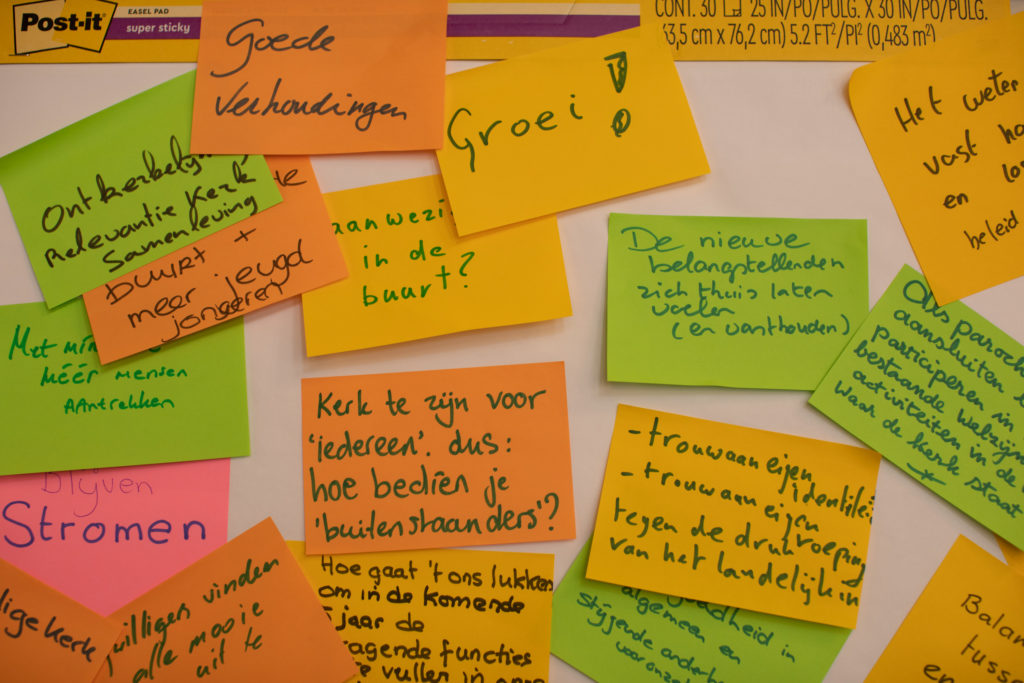 Post-it
EASEL PAD
super sticky
CONT. 30 25 IN/PO/PULG. X 30 IN/PO/PULG.
63,5 cm x 76,2 cm) 5.2 FT²/PI² (0,483 m²)
Goede
Verhoudingen
Groei !
Het weten
vast
en
beleid
Ontkerkelij
Relevantie Kerk
Samenleving
buurt +
meer jeugd
jongeren
aanwezi
in de
buurt?
De nieuwe
belangstellenden
zich thuis laten
voelen
(en vasthouden)
Als paroch
aansluiten
participeren in
bestaande welzijn
activiteiten in de
waar de kerk staat
Met min
méér mensen
aantrekken
Kerk te zijn voor
'iedereen'. dus:
hoe bedien je
'buitenstaanders'?
- trouw aan eigen
identitei
- trouw aan eigen
roeping
tegen de druk
van het landelijk in
Blijven
Stromen
ligekerk
willigers vinden
alle mooie
uit te
Hoe gaat 't ons lukken
om in de komende
5 jaar de
agende functies
te vullen in onze
algemeen en
stijgende
Balan
tusse
en